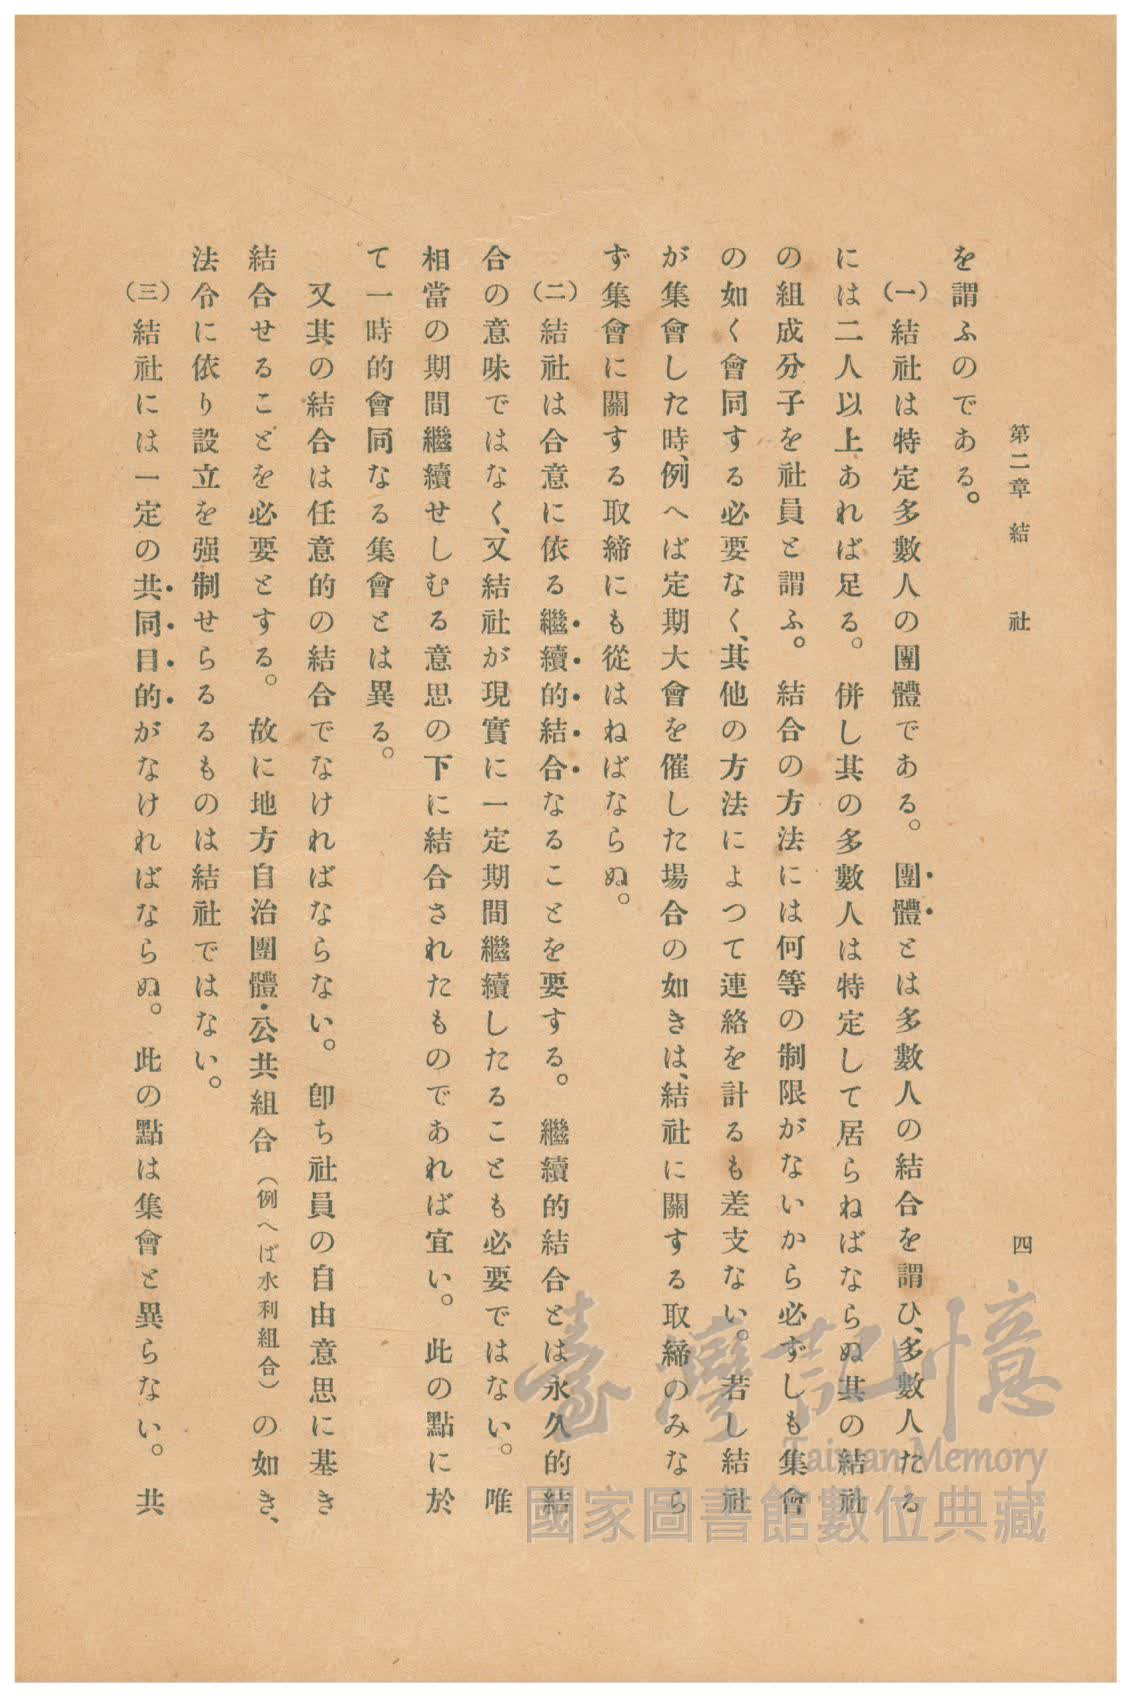 第二章　結　社
四
を謂ふのである。
（一）結社は特定多數人の團體である。　團體とは多數人の結合を謂ひ、多數人たる
には二人以上あれば足る。　併し其の多數人は特定して居らねばならぬ其の結社
の組成分子を社員と謂ふ。　結合の方法には何等の制限がないから必ずしも集會
の如く會同する必要なく、其他の方法によつて連絡を計るも差支ない。若し結社
が集會した時、例へば定期大會を催した場合の如きは、結社に關する取締のみなら
ず集會に關する取締にも從はねばならぬ。
（二）結社は合意に依る繼續的結合なることを要する。　繼續的結合とは永久的結
合の意味ではなく、又結社が現實に一定期間繼續したることも必要ではない。　唯
相當の期間繼續せしむる意思の下に結合されたものであれば宜い。　此の點に於
て一時的會同なる集會とは異る。
又其の結合は任意的の結合でなければならない。　卽ち社員の自由意思に基き
結合せることを必要とする。　故に地方自治團體・公共組合（例へば水利組合）の如き、
法令に依り設立を强制せらるるものは結社ではない。
（三）結社には一定の共同目的がなければならぬ。　此の點は集會と異らない。　共
臺灣記憶
Taiwan Memory
國家圖書館數位典藏